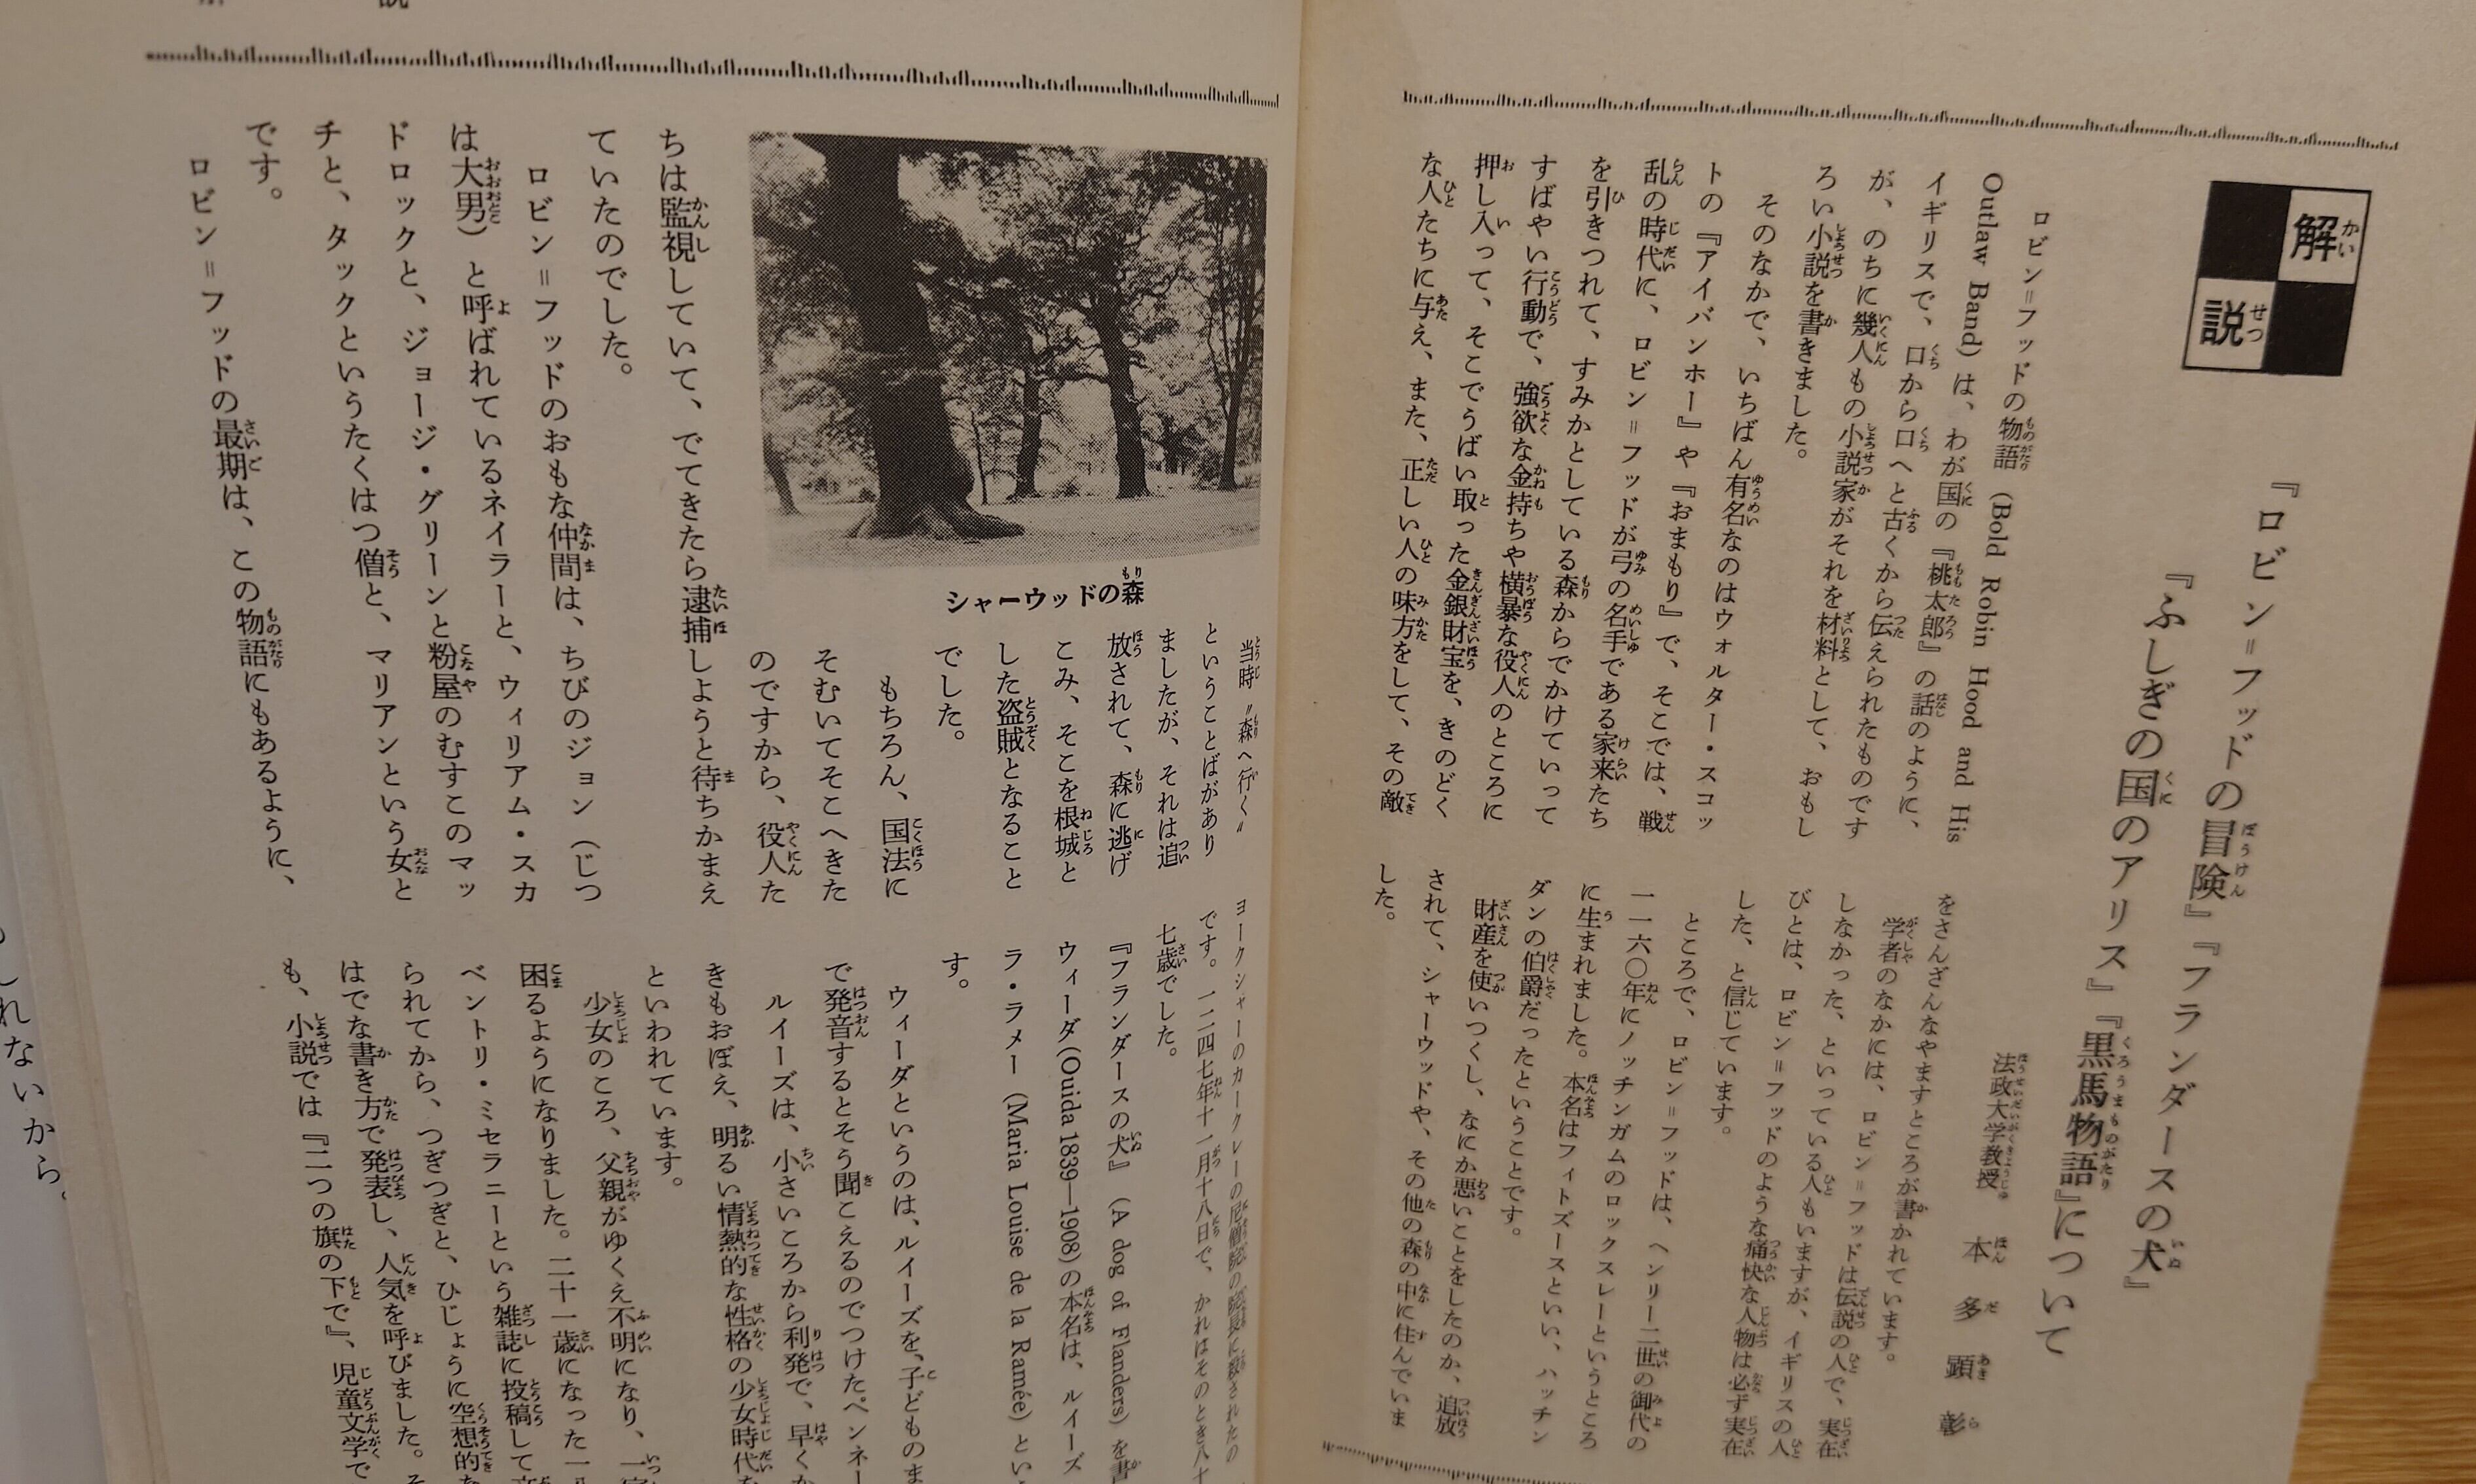 解説
『ロビン=フッドの冒険』『フランダースの犬』
『ふしぎの国のアリス』『黒馬物語』について
法政大学教授 本多顕彰
ロビン=フッドの物語(Bold Robin Hood and His
Outlaw Band)は、わが国の『桃太郎』の話のように、
イギリスで、口から口へと古くから伝えられたものです
が、のちに幾人もの小説家がそれを材料として、おもし
ろい小説を書きました。
そのなかで、いちばん有名なのはウォルター・スコッ
トの『アイバンホー』や『おまもり』で、そこでは、戦
乱の時代に、ロビン=フッドが弓の名手である家来たち
を引きつれて、すみかとしている森からでかけていって
すばやい行動で、強欲な金持ちや横暴な役人のところに
押し入って、そこでうばい取った金銀財宝を、きのどく
な人たちに与え、また、正しい人の味方をして、その敵
をさんざんなやますところが書かれています。
学者のなかには、ロビン=フッドは伝説の人で、実在
しなかった、といっている人もいますが、イギリスの人
びとは、ロビン=フッドのような痛快な人物は必ず実在
した、と信じています。
ところで、ロビン=フッドは、ヘンリー二世の御代の
一一六〇年にノッチンガムのロックスレーというところ
に生まれました。本名はフィトズースといい、ハッチン
ダンの伯爵だったということです。
財産を使いつくし、なにか悪いことをしたのか、追放
されて、シャーウッドや、その他の森の中に住んでいま
した。
シャーウッドの森
当時〝森へ行く〟
ということばがあり
ましたが、それは追
放されて、森に逃げ
こみ、そこを根城と
した盗賊となること
でした。
もちろん、国法に
そむいてそこへきた
のですから、役人た
ちは監視していて、でてきたら逮捕しようと待ちかまえ
ていたのでした。
ロビン=フッドのおもな仲間は、ちびのジョン(じつ
は大男)と呼ばれているネイラーと、ウィリアム・スカ
ドロックと、ジョージ・グリーンと粉屋のむすこのマッ
チと、タックというたくはつ僧と、マリアンという女と
です。
ロビン=フッドの最期は、この物語にもあるように、
ヨークシャーのカークレーの尼僧院の院長に殺されたの
です。一二四七年十一月十八日で、かれはそのとき八十
七歳でした。
『フランダースの犬』(A dog of Flanders)を書
ウィーダ(Ouida 1839—1908)の本名は、ルイーズ
ラ・ラメー(Maria Louise de la Ramée)とい
す。
ウィーダというのは、ルイーズを、子どものま
で発音するとそう聞こえるのでつけたペンネー
ルイーズは、小さいころから利発で、早くか
きもおぼえ、明るい情熱的な性格の少女時代を
といわれています。
少女のころ、父親がゆくえ不明になり、一家
困るようになりました。二十一歳になった一八
ベントリ・ミセラニーという雑誌に投稿して
られてから、つぎつぎと、ひじょうに空想的な
はでな書き方で発表し、人気を呼びました。そ
も、小説では『二つの旗の下で』、児童文学で
しれないから。